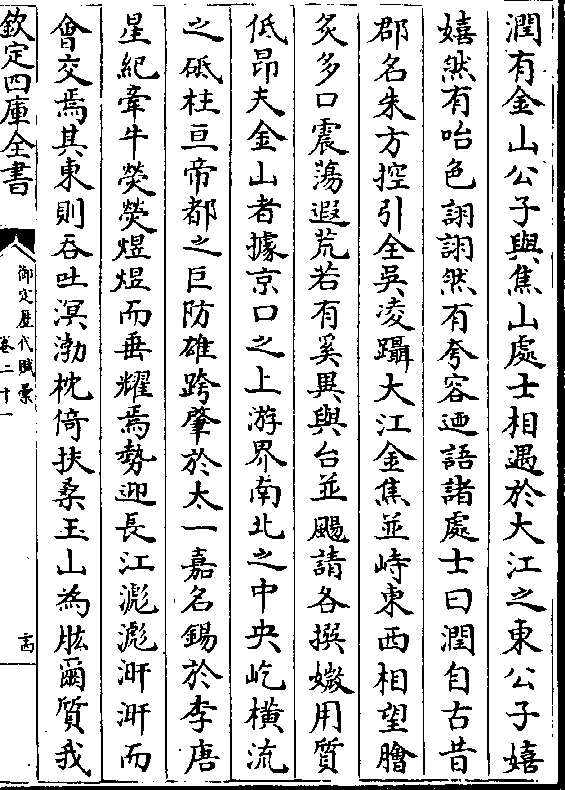 潤有金山公子與焦山處士相遇於大江之東公子嬉
嬉然有咍色詡詡然有夸容迺語諸處士曰潤自古昔
郡名朱方控引全吳凌躡大江金焦並峙東西相望膾
炙多口震蕩遐荒若有奚異與台並颺請各撰媺用質
低昂夫金山者據京口之上游界南北之中央屹橫流
之砥柱亘帝都之巨防雄跨肇於太一嘉名錫於李唐
星紀牽牛熒熒煜煜而垂耀焉勢迎長江滮滮汧汧而
會交焉其東則吞吐溟渤枕倚扶桑玉山為肱爾質我
欽定四庫全書
御定歷代賦彙
卷二十一